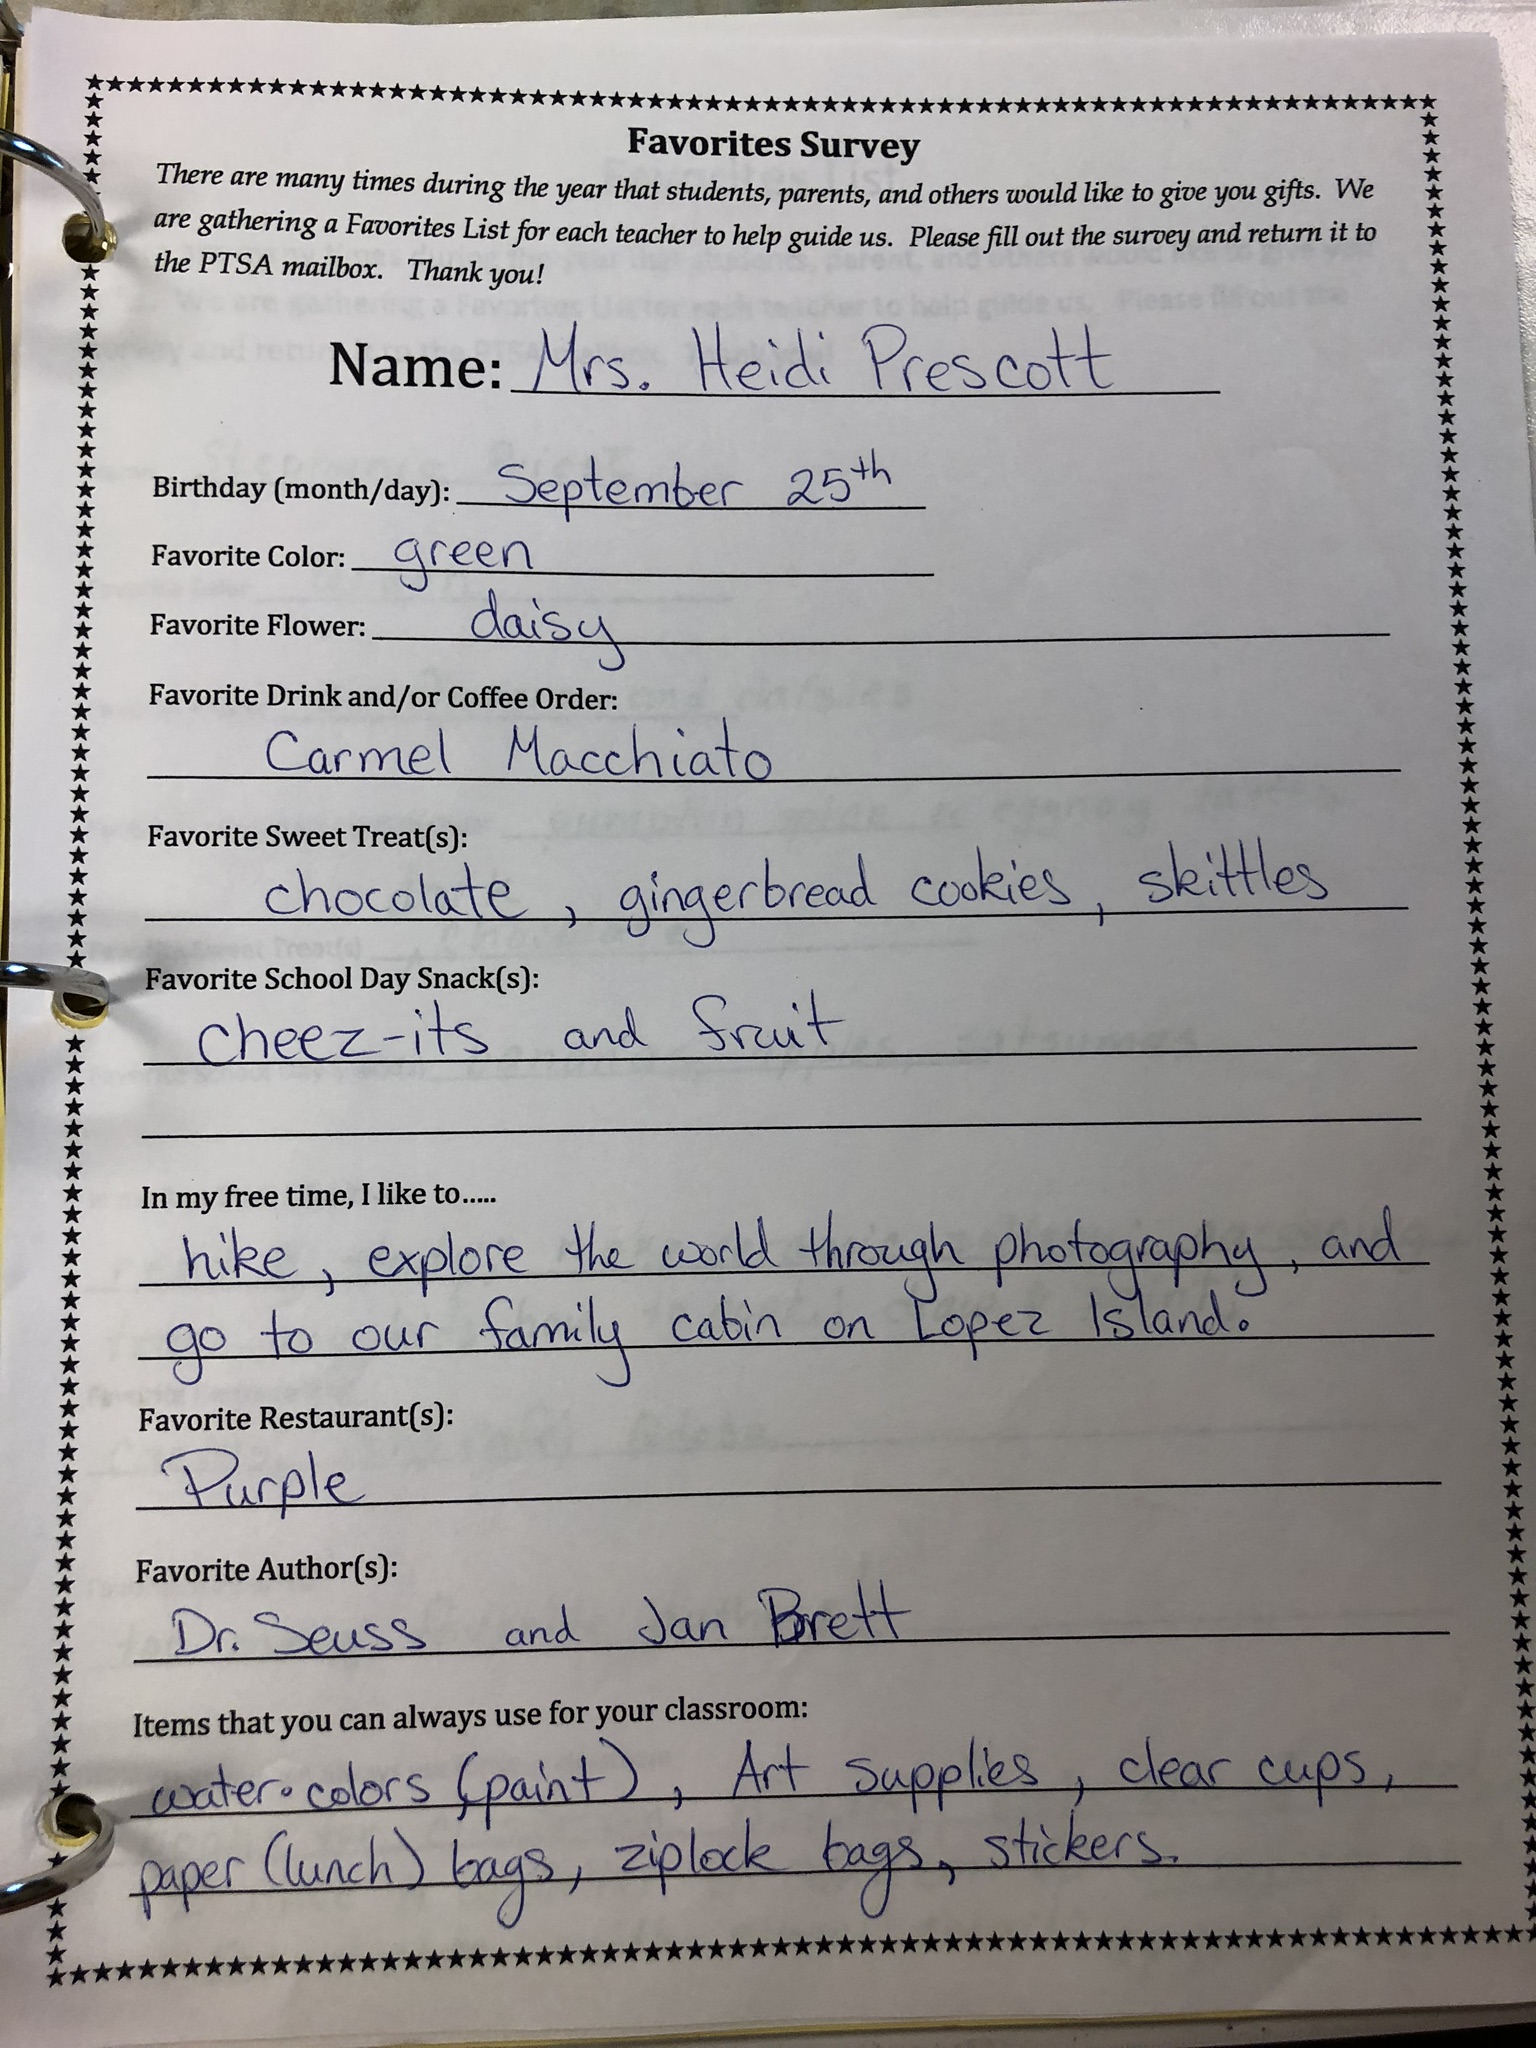 Favorites Survey
There are many times during the year that students, parents, and others would like to give you gifts. We
are gathering a Favorites List for each teacher to help guide us. Please fill out the survey and return it to
the PTSA mailbox. Thank you!
Name: Mrs. Heidi Prescott
Birthday (month/day): September 25th
Favorite Color: green
Favorite Flower: daisy
Favorite Drink and/or Coffee Order:
Carmel Macchiato
Favorite Sweet Treat(s):
chocolate, gingerbread cookies, skittles
Favorite School Day Snack(s):
cheez-its and fruit
In my free time, I like to.....
hike, explore the world through photography, and
go to our family cabin on Lopez Island.
Favorite Restaurant(s):
Purple
Favorite Author(s):
Dr. Seuss and Jan Brett
Items that you can always use for your classroom:
water·colors (paint), Art supplies, clear cups,
paper (lunch) bags, ziplock bags, stickers.